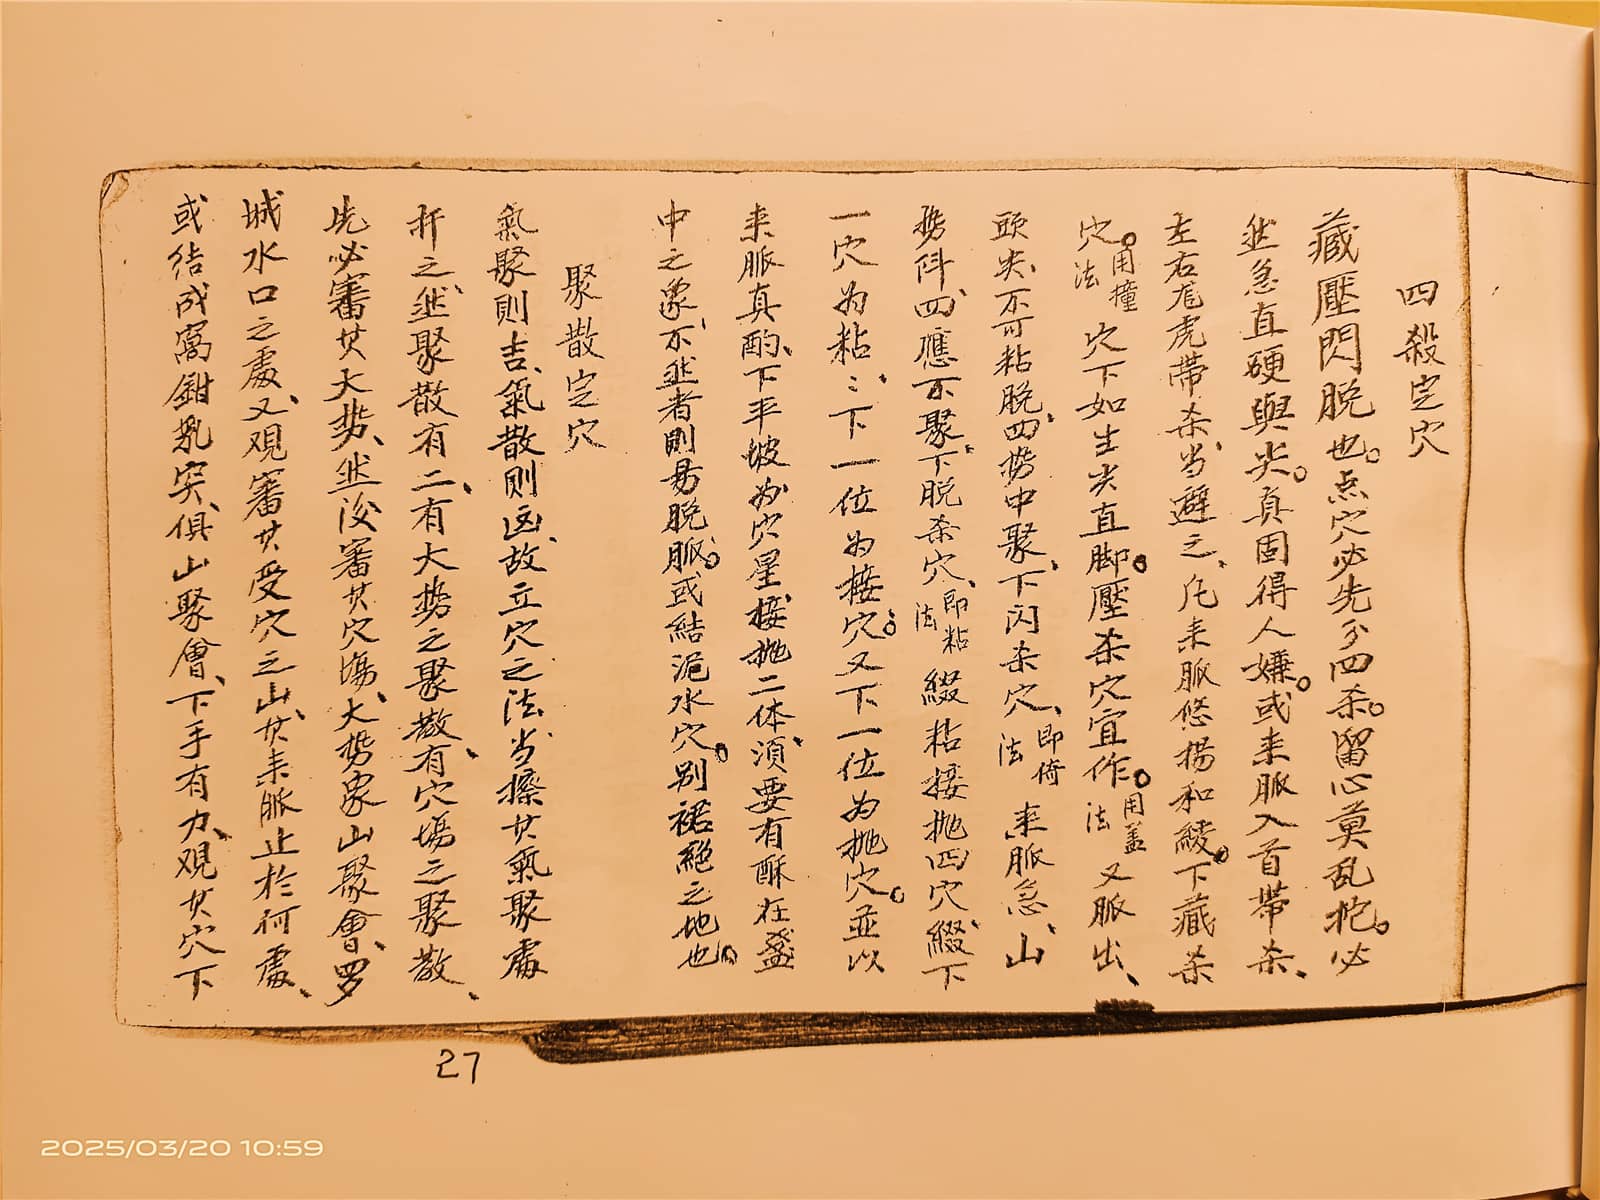 四殺定穴
藏壓閃脱也。点穴必先分四杀。留心莫乱挖。必
然急直硬與尖。真固得人嫌。或来脈入首带杀、
左右尨虎带杀、当避之、凡来脈悠揚和緩。下藏杀
穴。用撞穴法 穴下如生尖直脚。壓杀穴宜作。用盖法 又脈出、
頭尖、不可粘脱、四势中聚、下闪杀穴、即倚法 来脈急、山
势斜、四應不聚、下脱杀穴、即粘法 綴粘接抛四穴、綴下
一穴为粘、〻下一位为接穴。又下一位为抛穴。並以
来脈真酌、下平坡为穴星、接抛二体、須要有酥在盞
中之象、不然者則易脱脈。或結泥水穴。别裙絕之地也。
聚散定穴
氣聚則吉、氣散則凶、故立穴之法、当擦其氣聚處
扦之、然聚散有二、有大势之聚散、有穴塲之聚散、
先必審其大势、然後審其穴塲、大势象山聚會、罗
城水口之處、又观審其受穴之山、其来脈止於何處、
或结成窩鉗乳突、俱山聚會、下手有力、观其穴下
27
2025/03/20 10:59